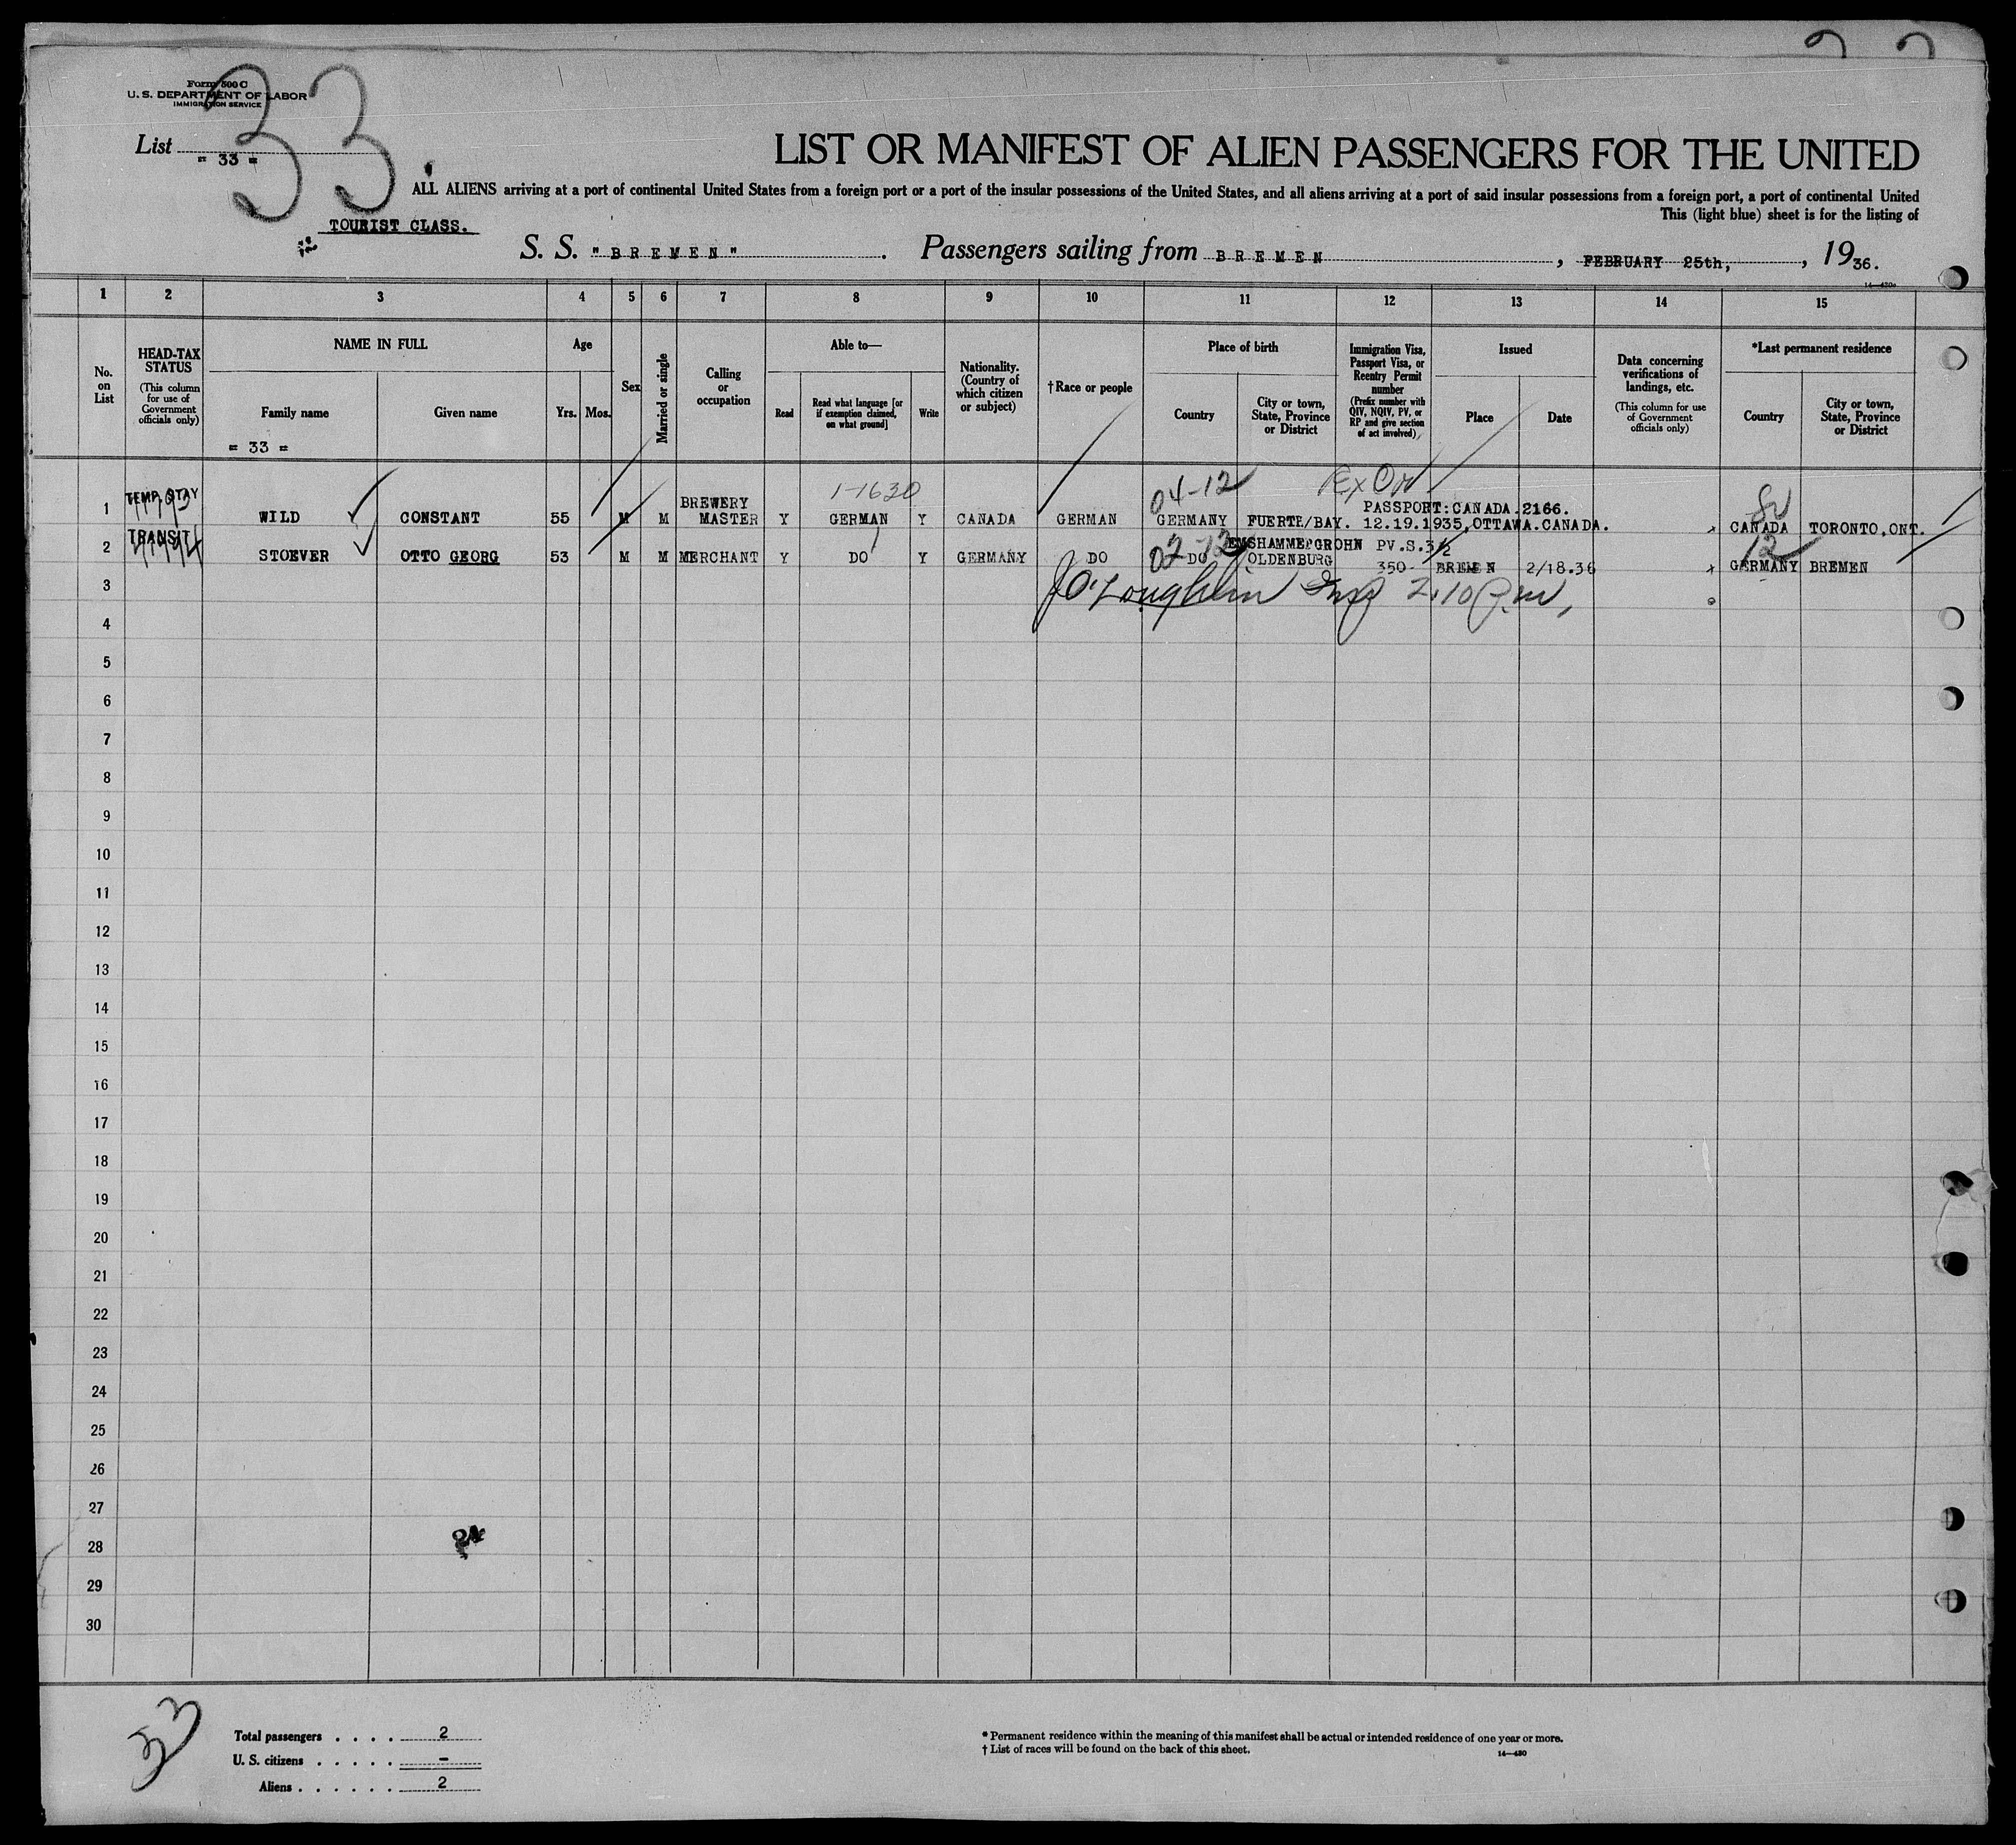 Form 500 C
U. S. DEPARTMENT OF LABOR
IMMIGRATION SERVICE
33
List = 33 =
LIST OR MANIFEST OF ALIEN PASSENGERS FOR THE UNITED
ALL ALIENS arriving at a port of continental United States from a foreign port or a port of the insular possessions of the United States, and all aliens arriving at a port of said insular possessions from a foreign port, a port of continental United
This (light blue) sheet is for the listing of
TOURIST CLASS.
S. S. "BREMEN". Passengers sailing from BREMEN, FEBRUARY 25th, , 1936.
1 2 3 4 5 6 7 8 9 10 11 12 13 14 15
No. on List
HEAD-TAX STATUS (This column for use of Government officials only)
NAME IN FULL
Family name
Given name
Age
Yrs. Mos.
Sex
Married or single
Calling or occupation
Able to—
Read
Read what language [or if exemption claimed, on what ground]
Write
Nationality. (Country of which citizen or subject)
†Race or people
Place of birth
Country
City or town, State, Province or District
Immigration Visa, Passport Visa, or Reentry Permit number (Prefix number with QIV, NQIV, PV, or RP and give section of act involved)
Issued
Place
Date
Data concerning verifications of landings, etc. (This column for use of Government officials only)
*Last permanent residence
Country
City or town, State, Province or District
= 33 =
1-1630 04-12
1 TEMP. STAY WILD CONSTANT 55 M M BREWERY MASTER Y GERMAN Y CANADA GERMAN GERMANY FUERTH/BAY. PASSPORT:CANADA.2166. 12.19.1935,OTTAWA.CANADA. CANADA TORONTO,ONT.
02-12 12
2 TRANSIT STOEVER OTTO GEORG 53 M M MERCHANT Y DO Y GERMANY DO DO OLDENBURG PV.S.3½ 350- BREMEN 2/18.36 GERMANY BREMEN
J O'Loughlin Insp 2.10 P.m,
3
4
5
6
7
8
9
10
11
12
13
14
15
16
17
18
19
20
21
22
23
24
25
26
27
28
29
30
33
Total passengers . . . . 2
U. S. citizens . . . . . –
Aliens . . . . . . 2
* Permanent residence within the meaning of this manifest shall be actual or intended residence of one year or more.
† List of races will be found on the back of this sheet.
14—430